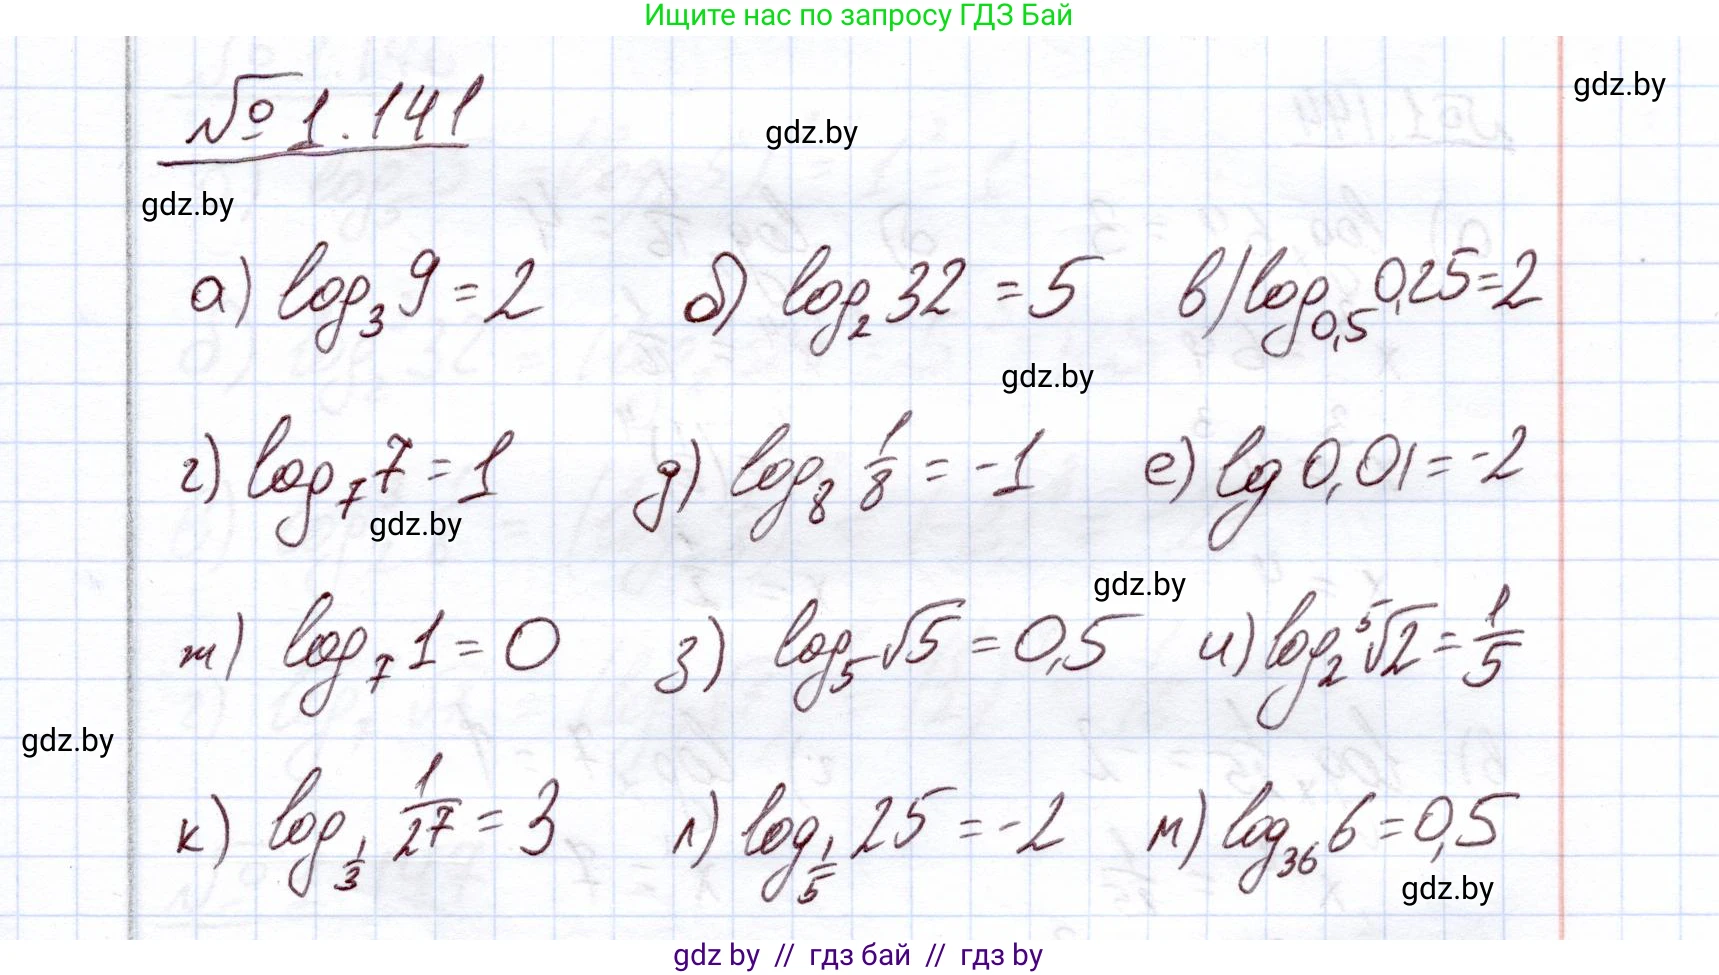 Ищите нас по запросу ГДЗ Бай
gdz.by
№ 1.141
gdz.by
gdz.by
а) log₃ 9 = 2 б) log₂ 32 = 5 в) log₀,₅ 0,25 = 2
gdz.by
г) log₇ 7 = 1 д) log₈ 1/8 = -1 е) lg 0,01 = -2
gdz.by
gdz.by
ж) log₇ 1 = 0 з) log₅ √5 = 0,5 и) log₂ ⁵√2 = 1/5
gdz.by
к) log_{1/3} 1/27 = 3 л) log_{1/5} 25 = -2 м) log₃₆ 6 = 0,5
gdz.by
gdz by // гдз бай // гдз by